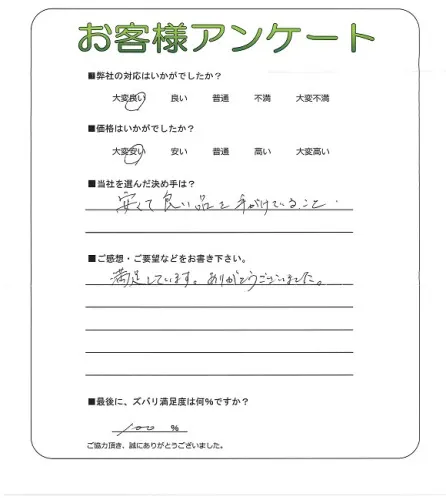 お客様アンケート
■弊社の対応はいかがでしたか？
大変良い 良い 普通 不満 大変不満
■価格はいかがでしたか？
大変安い 安い 普通 高い 大変高い
■当社を選んだ決め手は？
安くて良い品を手がけていること．
■ご感想・ご要望などをお書き下さい。
満足しています。ありがとうございました。
■最後に、ズバリ満足度は何％ですか？
100 ％
ご協力頂き、誠にありがとうございました。